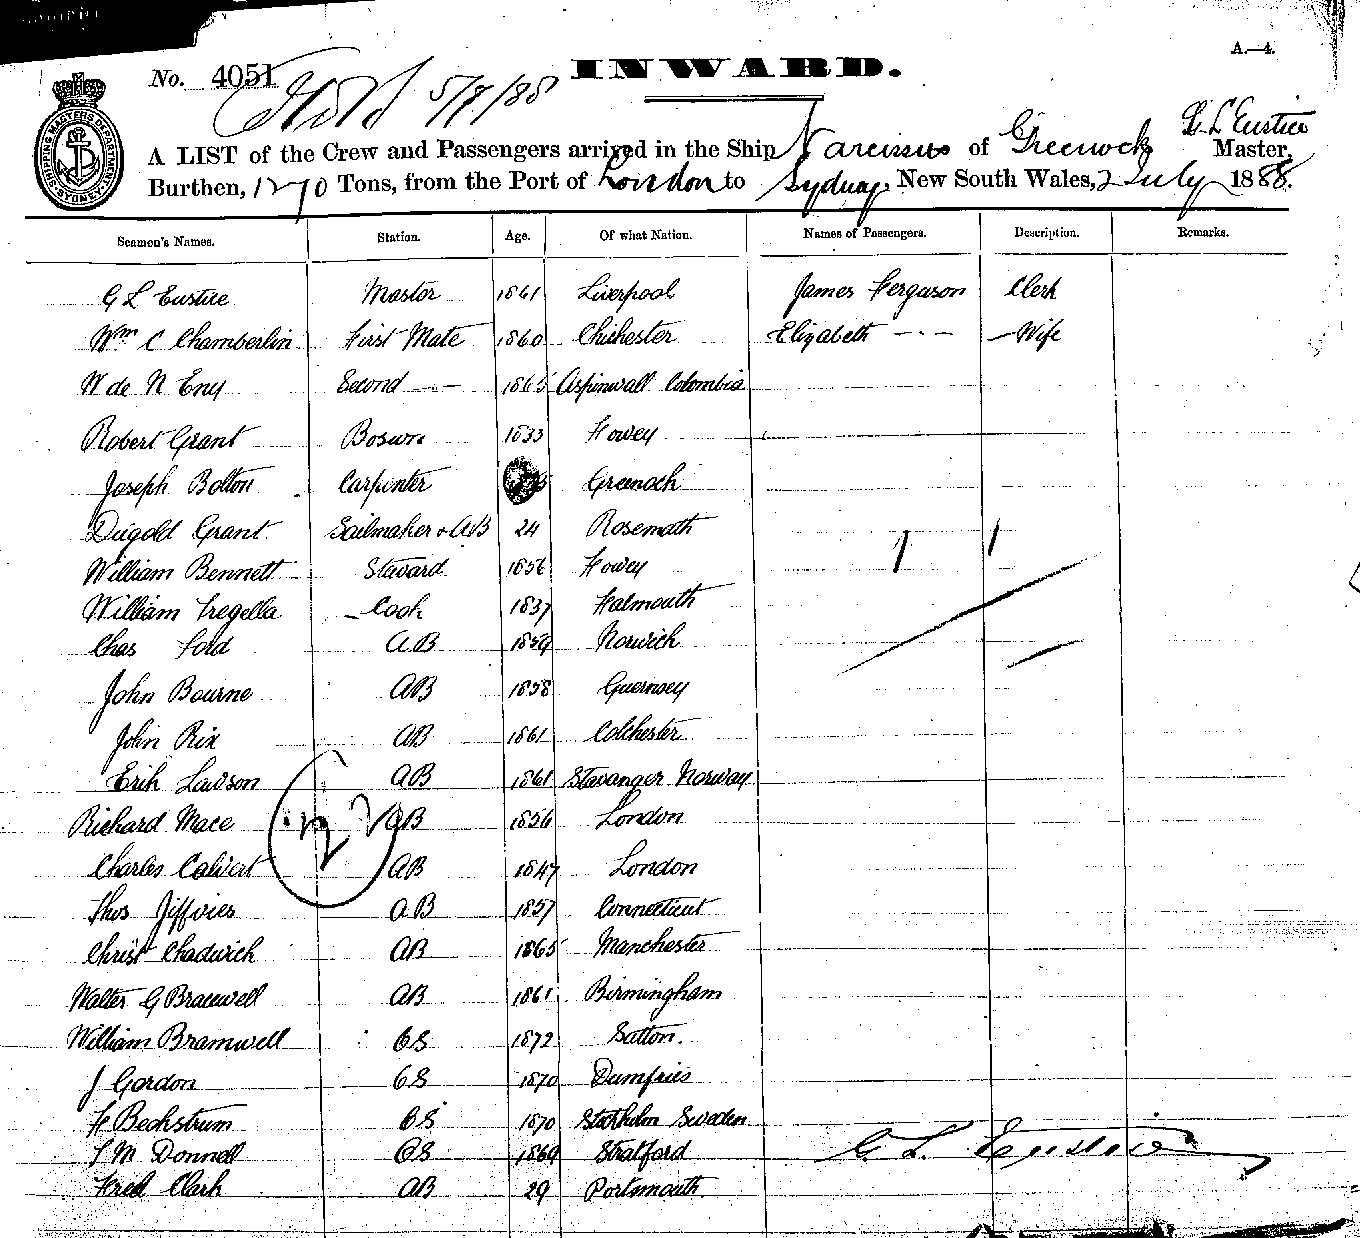 A.—4.
No. 4051 INWARD.
5/7/88
G L Eustice
A LIST of the Crew and Passengers arrived in the Ship Narcissus of Greenock Master,
Burthen, 1270 Tons, from the Port of London to Sydney, New South Wales, 2 July 1888.
SHIPPING MASTERS DEPARTMENT SYDNEY
Seamen's Names. Station. Age. Of what Nation. Names of Passengers. Description. Remarks.
G L Eustice Master 1861 Liverpool James Ferguson Clerk
Wm C Chamberlin First Mate 1860 Chichester Elizabeth — - — Wife
W de N Eny Second — - — 1865 Aspinwall Colombia
Robert Grant Boswn 1833 Fowey
Joseph Bolton Carpenter Greenock
Dugold Grant Sailmaker & AB 24 Rosemath
William Bennett Steward 1856 Fowey
William Tregella Cook 1837 Falmouth
Chas Ford AB 1859 Norwich
John Bourne AB 1858 Guernsey
John Rix AB 1861 Colchester
Erik Lawson AB 1861 Stavanger Norway
Richard Mace AB 1856 London
22
Charles Calvat AB 1847 London
Thos Jiffries AB 1857 Connecticut
Christ Chadwick AB 1865 Manchester
Walter G Bracewell AB 1861 Birmingham
William Bramwell OS 1872 Satton.
J Gordon OS 1870 Dumfries
F Beckstrum OS 1870 Stockholm Sweden
T McDonnell OS 1869 Stratford
G. L. Eustice
Fred Clark AB 29 Portsmouth